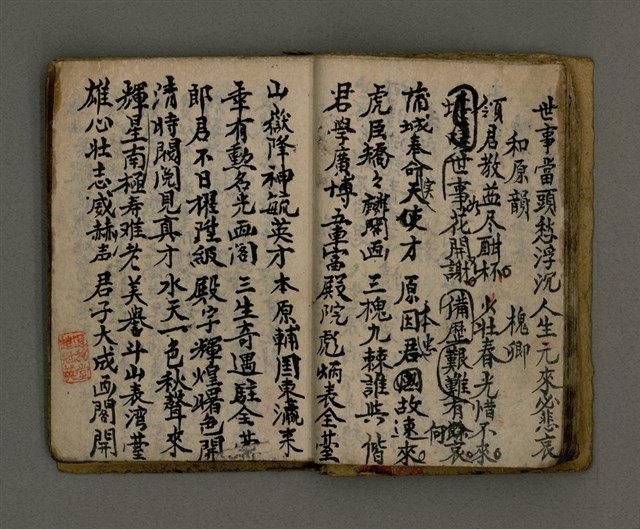 世事當頭愁浮沉 人生元來必悲哀
和原韻 槐卿
領君教益尽酣杯 火壯春光惜不來
世事花開謝 備歷艱難有餘哀
蒲城奉命天使才 原因君國故速來
虎臣矯々麟閣画 三槐九棘誰與偕
君學廣博五車富 殿院彪炳表全臺
山嶽降神毓英才 本原輔国東瀛來
垂有勳名光画閣 三生奇遇駐全臺
郎君不日擢陞級 殿字輝煌曙色開
清時閥閱見真才 水天一色秋聲來
輝星南極寿难老 美譽斗山表湾臺
雄心壯志威赫声 君子大成画閣開